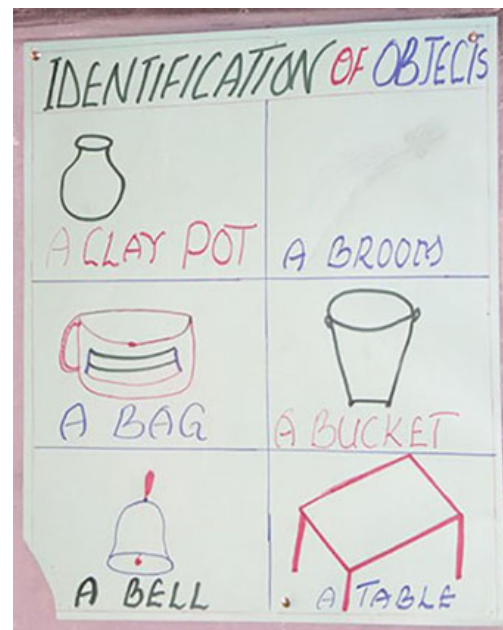 IDENTIFICATION OF OBJECTS
A CLAY POT
A BROOM
A BAG
A BUCKET
A BELL
A TABLE